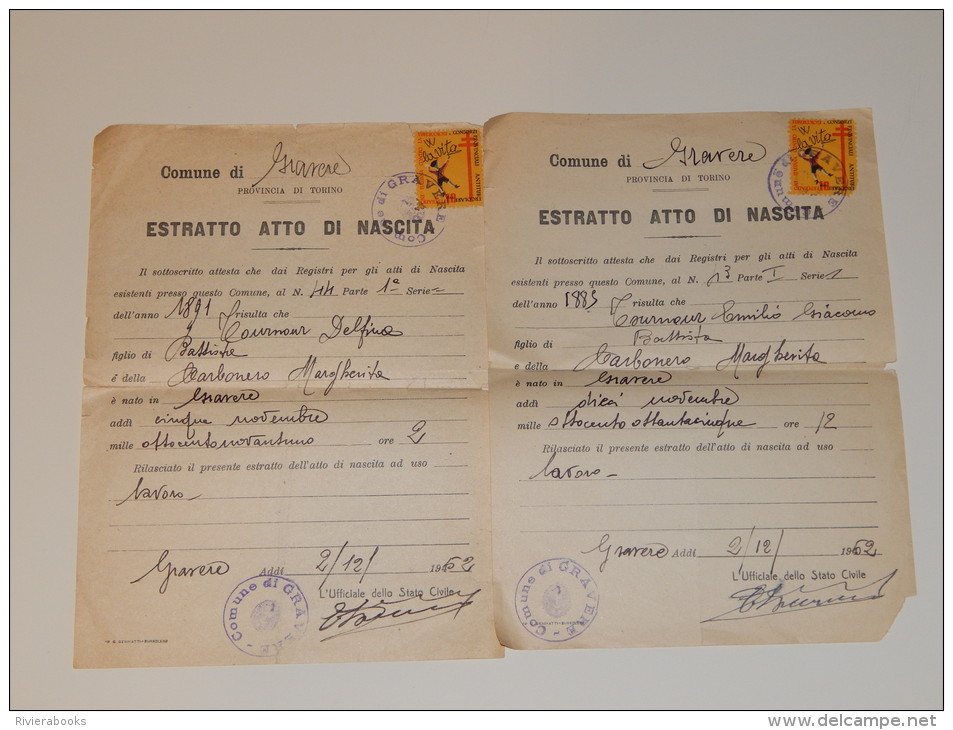 Comune di Gravere
PROVINCIA DI TORINO
W la vita
Comune di GRAVERE
ESTRATTO ATTO DI NASCITA
Il sottoscritto attesta che dai Registri per gli atti di Nascita
esistenti presso questo Comune, al N. 44 Parte 1ª Serie
dell'anno 1891 risulta che
Tournour Delfina
figlio di Battista
e della Carbonero Margherita
è nato in Gravere
addì cinque novembre
mille ottocentonovantuno ore 2
Rilasciato il presente estratto dell'atto di nascita ad uso
lavoro
Gravere Addì 2/12/ 1952
L'Ufficiale dello Stato Civile
Comune di GRAVERE
Comune di Gravere
PROVINCIA DI TORINO
W la vita
Comune di GRAVERE
ESTRATTO ATTO DI NASCITA
Il sottoscritto attesta che dai Registri per gli atti di Nascita
esistenti presso questo Comune, al N. 13 Parte I Serie
dell'anno 1885 risulta che
Tournour Emilio Giacomo
Battista
figlio di
e della Carbonero Margherita
è nato in Gravere
addì dieci novembre
mille ottocento ottantacinque ore 12
Rilasciato il presente estratto dell'atto di nascita ad uso
lavoro
Gravere Addì 2/12/ 1952
L'Ufficiale dello Stato Civile
Comune di GRAVERE
Rivierabooks
delcampe.net